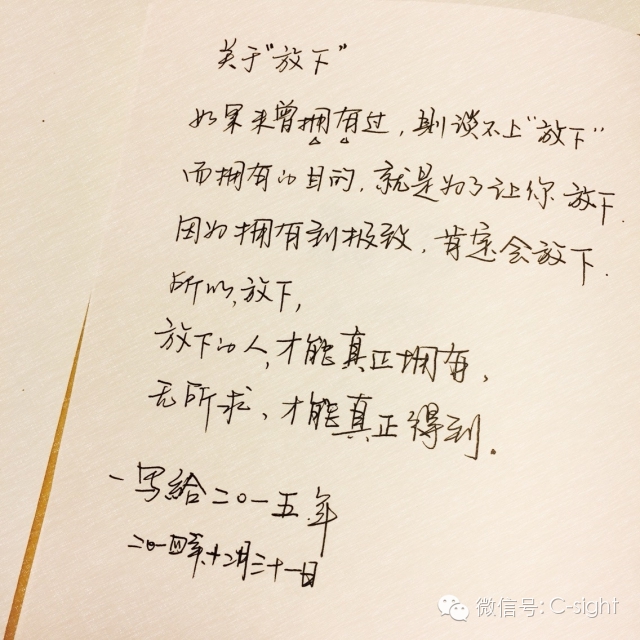 关于“放下”
如果未曾拥有过，则谈不上“放下”
而拥有的目的，就是为了让你放下.
因为拥有到极致，肯定会放下.
所以，放下，
放下的人，才能真正拥有，
无所求，才能真正得到.
-写给二〇一五年
二〇一四年十二月三十一日
微信号: C-sight